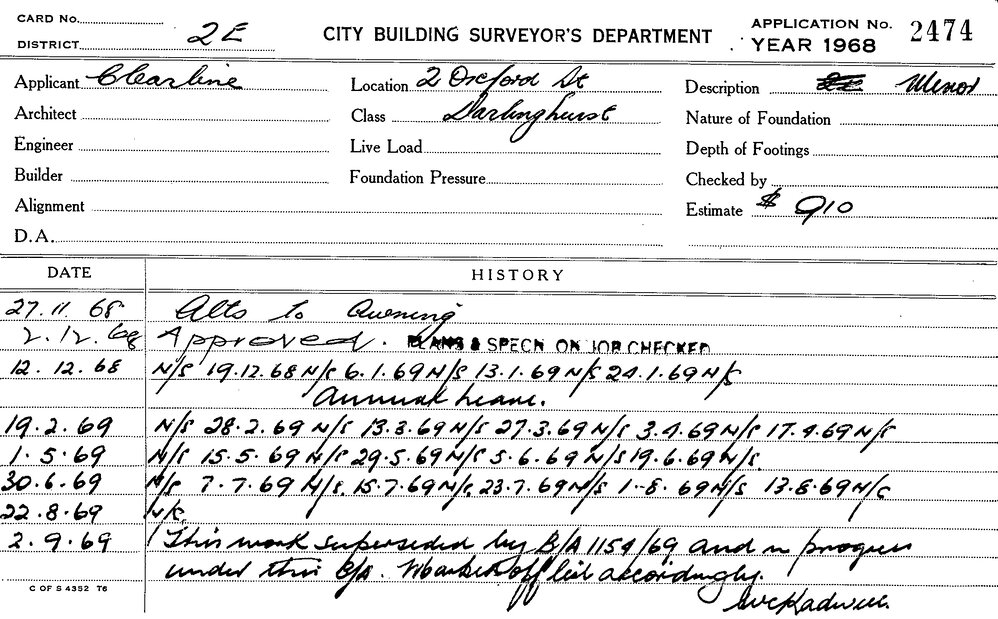 CARD No.
DISTRICT 2E
CITY BUILDING SURVEYOR'S DEPARTMENT
APPLICATION No. 2474
YEAR 1968
Applicant Clearline Location 2 Oxford St Description Minor
Architect Class Darlinghurst Nature of Foundation
Engineer Live Load Depth of Footings
Builder Foundation Pressure Checked by
Alignment Estimate $ 910
D.A.
DATE HISTORY
27.11.68 Alts to Awning
2.12.68 Approved. PLANS & SPECN ON JOB CHECKED
12.12.68 N/S 19.12.68 N/S 6.1.69 N/S 13.1.69 N/S 24.1.69 N/S
Annual Leave.
19.2.69 N/S 28.2.69 N/S 13.3.69 N/S 27.3.69 N/S 3.4.69 N/S 17.4.69 N/S
1.5.69 N/S 15.5.69 N/S 29.5.69 N/S 5.6.69 N/S 19.6.69 N/S.
30.6.69 N/S 7.7.69 N/S. 15.7.69 N/S, 23.7.69 N/S 1.8.69 N/S 13.8.69 N/S
22.8.69 N/S.
2.9.69 This work superseded by B/A 1154/69 and in progress
under this B/A. Marked off list accordingly.
C OF S 4352 T6